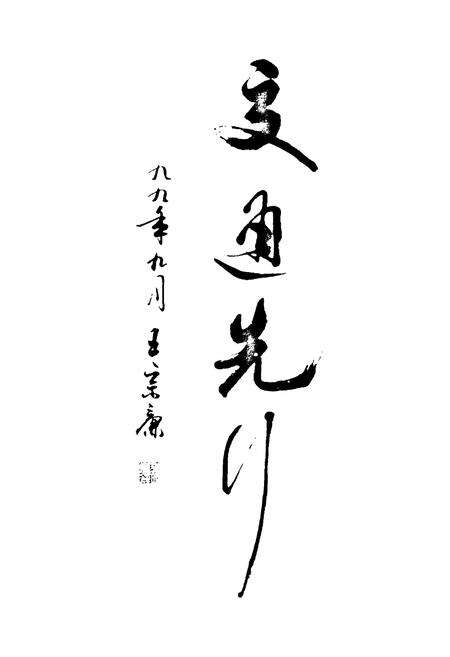 交通先行
九九年九月 王宗廉